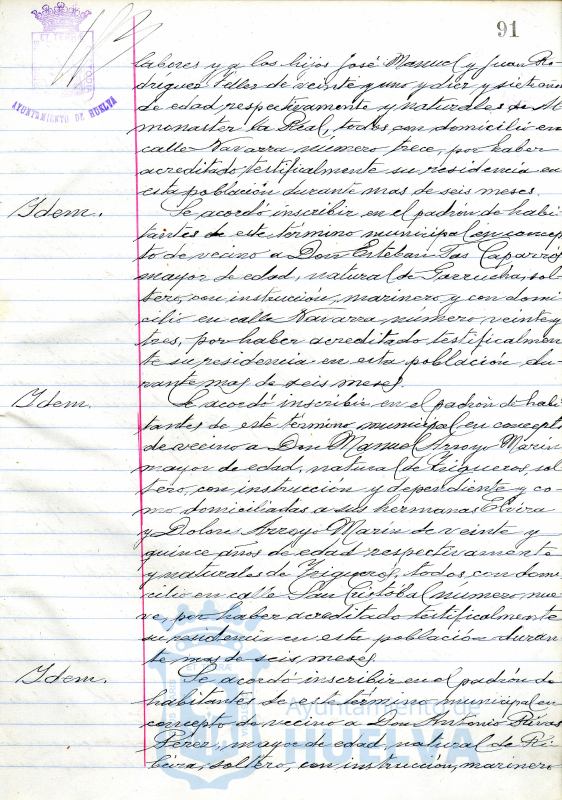 91
AYUNTAMIENTO DE HUELVA
labores y a los hijos José Manuel y Juan Ro-
driguez Villes de veinte y uno y diez y siete años
de edad respectivamente y naturales de Al-
monaster la Real, todos con domicilio en
calle Navarra número trece, por haber
acreditado testificalmente su residencia en
esta población durante mas de seis meses.
Idem.
Se acordó inscribir en el padrón de habi-
tantes de este término municipal en concep-
to de vecino a Don Esteban Caparrós
mayor de edad, natural de Garrucha, sol-
tero, con instrucción, marinero y con domi-
cilio en calle Navarra número veinte y
tres, por haber acreditado testificalmen-
te su residencia en esta población du-
rante mas de seis meses.
Idem.
Se acordó inscribir en el padrón de habi-
tantes de este término municipal en concepto
de vecino a Don Manuel Arroyo Marin
mayor de edad, natural de Trigueros, sol-
tero, con instrucción y dependiente y co-
mo domiciliadas a sus hermanas Elvira
y Dolores Arroyo Marin de veinte y
quince años de edad respectivamente
y naturales de Trigueros, todos con domi-
cilio en calle San Cristóbal número nue-
ve, por haber acreditado testificalmente
su residencia en esta población duran-
te mas de seis meses.
Idem.
Se acordó inscribir en el padrón de
habitantes de este término municipal en
concepto de vecino a Don Antonio Rivas
Pérez, mayor de edad, natural de Ri-
beira, soltero, con instrucción, marinero
Ayuntamiento de
HUELVA